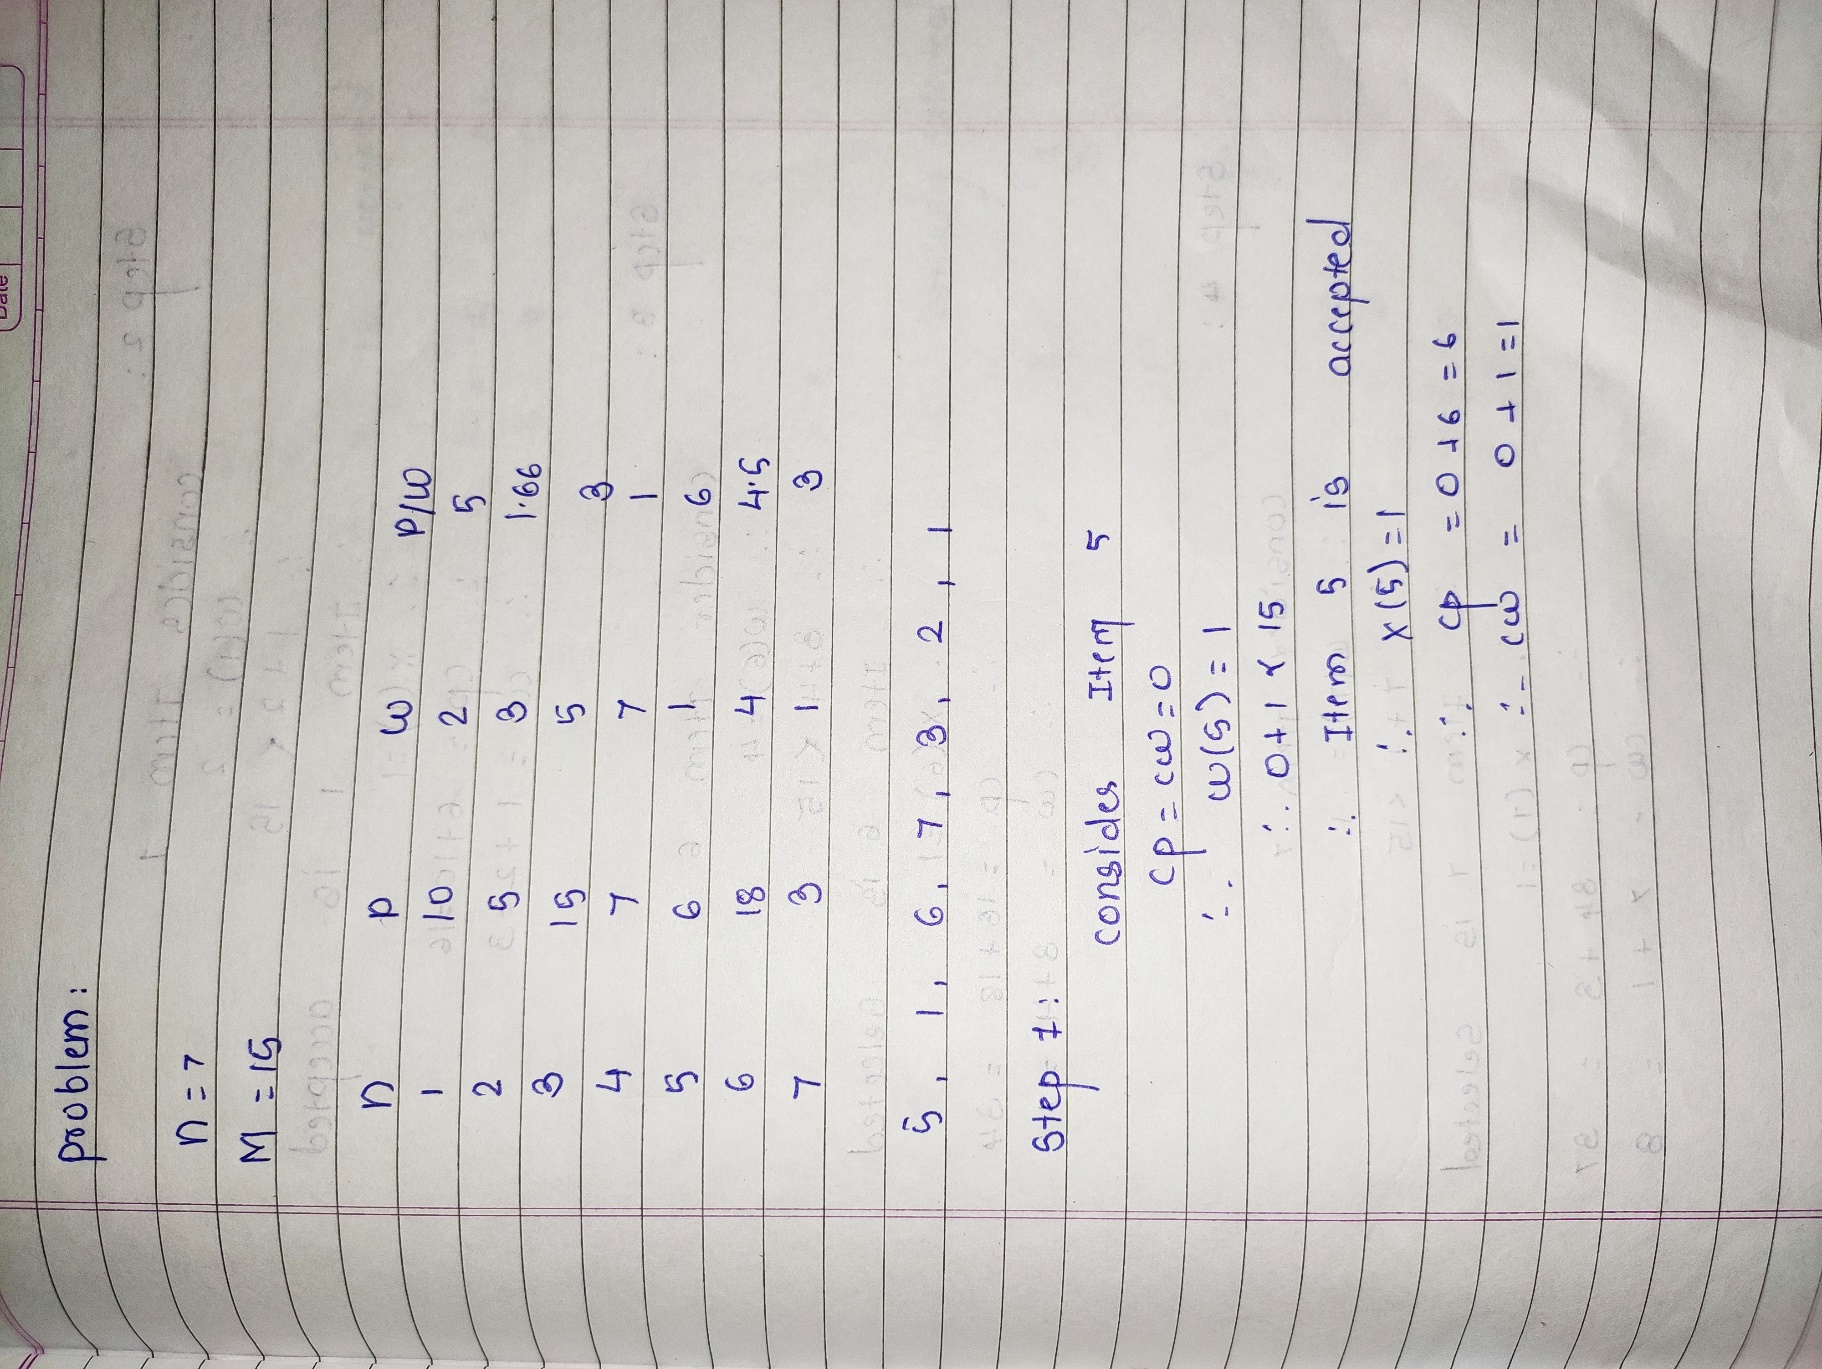 Date
problem:
n = 7
M = 15
n p w p/w
1 10 2 5
2 5 3 1.66
3 15 5 3
4 7 7 1
5 6 1 6
6 18 4 4.5
7 3 1 3
5, 1, 6, 7, 3, 2, 1
Step 1:
consider Item 5
cp = cw = 0
∴ w(5) = 1
∴ 0+1 < 15
∴ Item 5 is accepted
∴ x(5) = 1
∴ cp = 0+6 = 6
∴ cw = 0+1 = 1